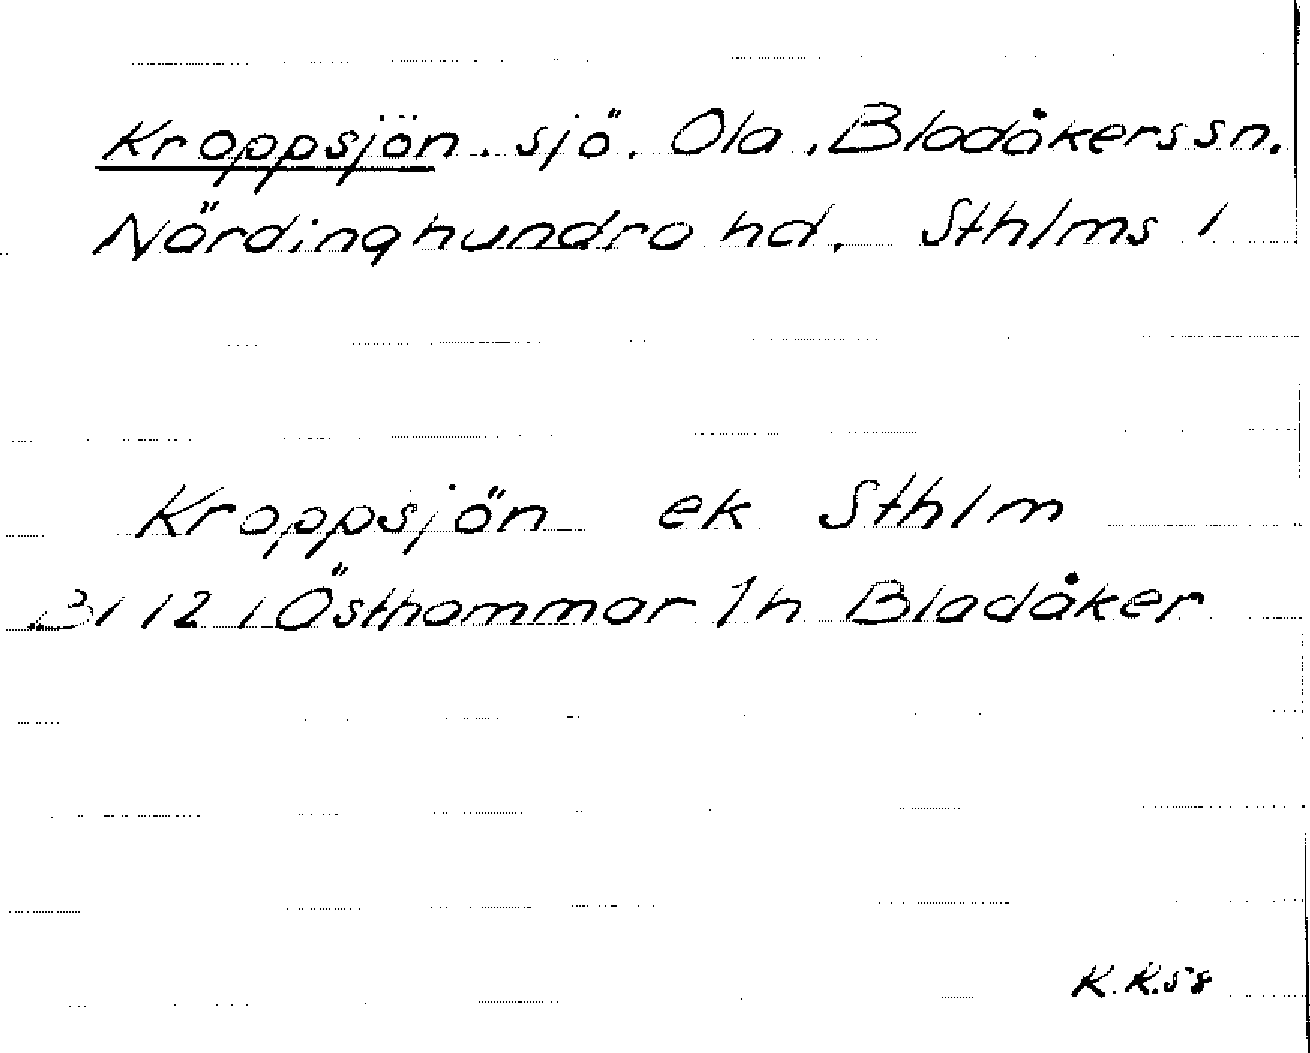 Kroppsjön. sjö. Ola. Bladåkers sn.
Närdinghundra hd. Sthlms l
Kroppsjön ek Sthlm
3112 1 Östhammar 1h Bladåker
K. K. 58